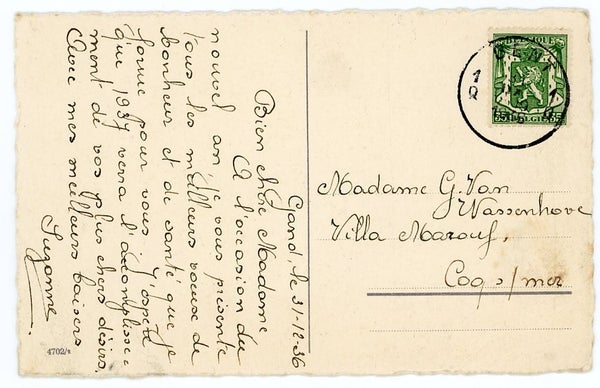 Gand, le 31-12-36
Bien chère Madame
A l'occasion du
nouvel an, je vous présente
tous les meilleurs voeux de
bonheur et de santé que je
forme pour vous. J'espère
que 1937 verra l'accomplisse-
ment de vos plus chers désirs.
Avec mes meilleurs baisers
Suzanne
4702/2
GENT
1
1
35 BELGIE 35
Madame G. Van
Wassenhove
Villa Marouf,
Coq s/mer